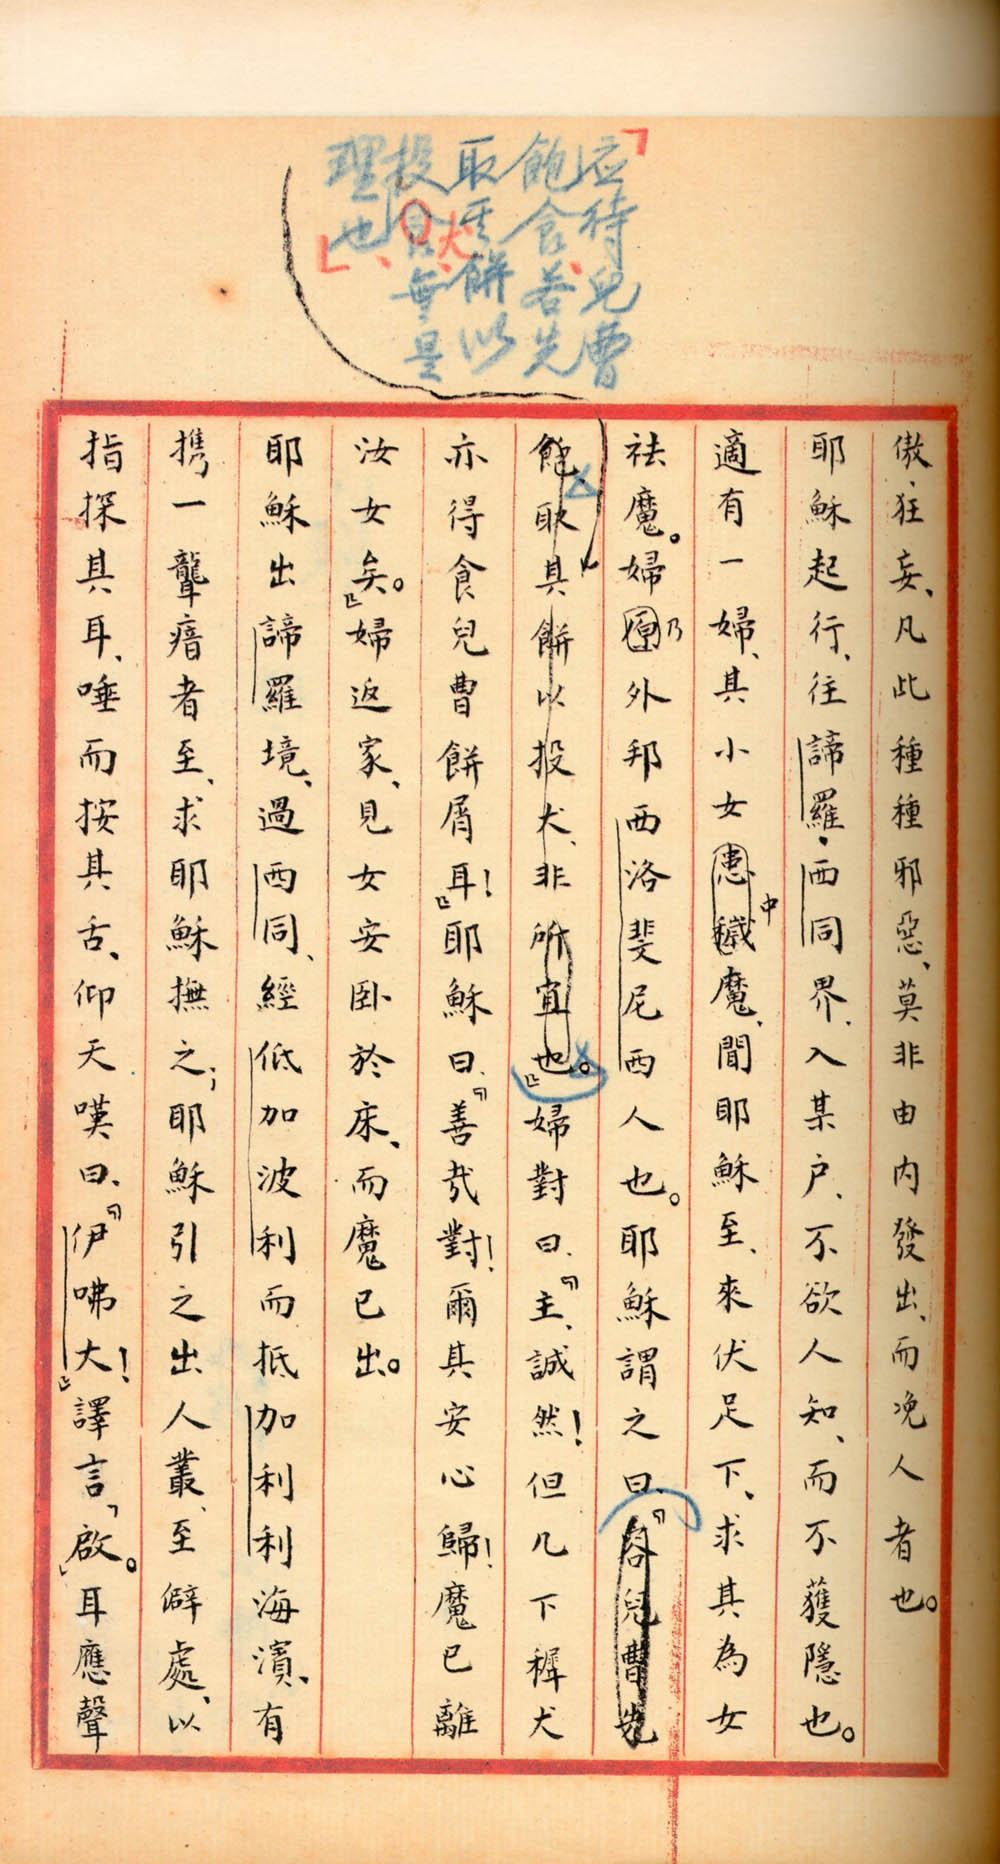 「应待兒曹
飽食、若先
取其餅以
投犬、食、無是
理也、」
傲、狂妄、凡此種種邪惡、莫非由内發出、而浼人者也。
耶穌起行、往諦羅、西同界、入某户、不欲人知、而不獲隱也。
適有一婦、其小女患穢中魔、聞耶穌至、來伏足下、求其為女
祛魔。婦乃外邦西洛斐尼西人也。耶穌謂之曰、『容兒曹先
飽、取其餅以投犬、非所宜也。』婦對曰、『主、誠然！但几下樨犬
亦得食兒曹餅屑耳！』耶穌曰、『善哉對！爾其安心歸！魔已離
汝女矣。』婦返家、見女安卧於床、而魔已出。
耶穌出諦羅境、過西同、經低加波利而抵加利利海濱、有
携一聾瘖者至、求耶穌撫之；耶穌引之出人叢、至僻處、以
指探其耳、唾而按其舌、仰天嘆曰、『伊咈大！』譯言『啟。』耳應聲